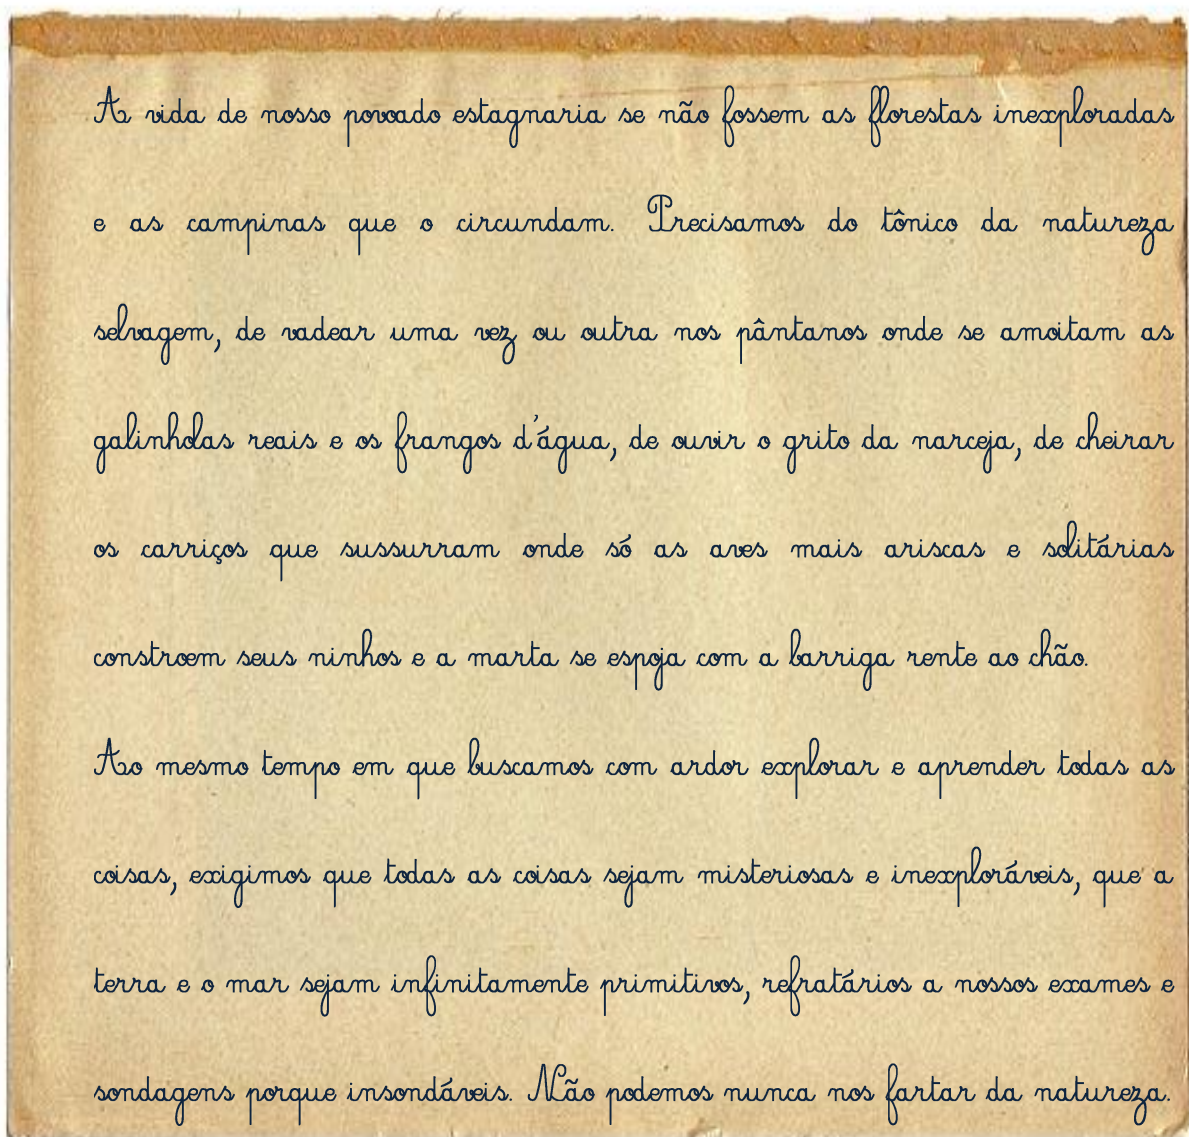 A vida de nosso povoado estagnaria se não fossem as florestas inexploradas
e as campinas que o circundam. Precisamos do tônico da natureza
selvagem, de vadear uma vez ou outra nos pântanos onde se amoitam as
galinholas reais e os frangos d'água, de ouvir o grito da narceja, de cheirar
os carriços que sussurram onde só as aves mais ariscas e solitárias
constroem seus ninhos e a marta se espoja com a barriga rente ao chão.
Ao mesmo tempo em que buscamos com ardor explorar e aprender todas as
coisas, exigimos que todas as coisas sejam misteriosas e inexploráveis, que a
terra e o mar sejam infinitamente primitivos, refratários a nossos exames e
sondagens porque insondáveis. Não podemos nunca nos fartar da natureza.